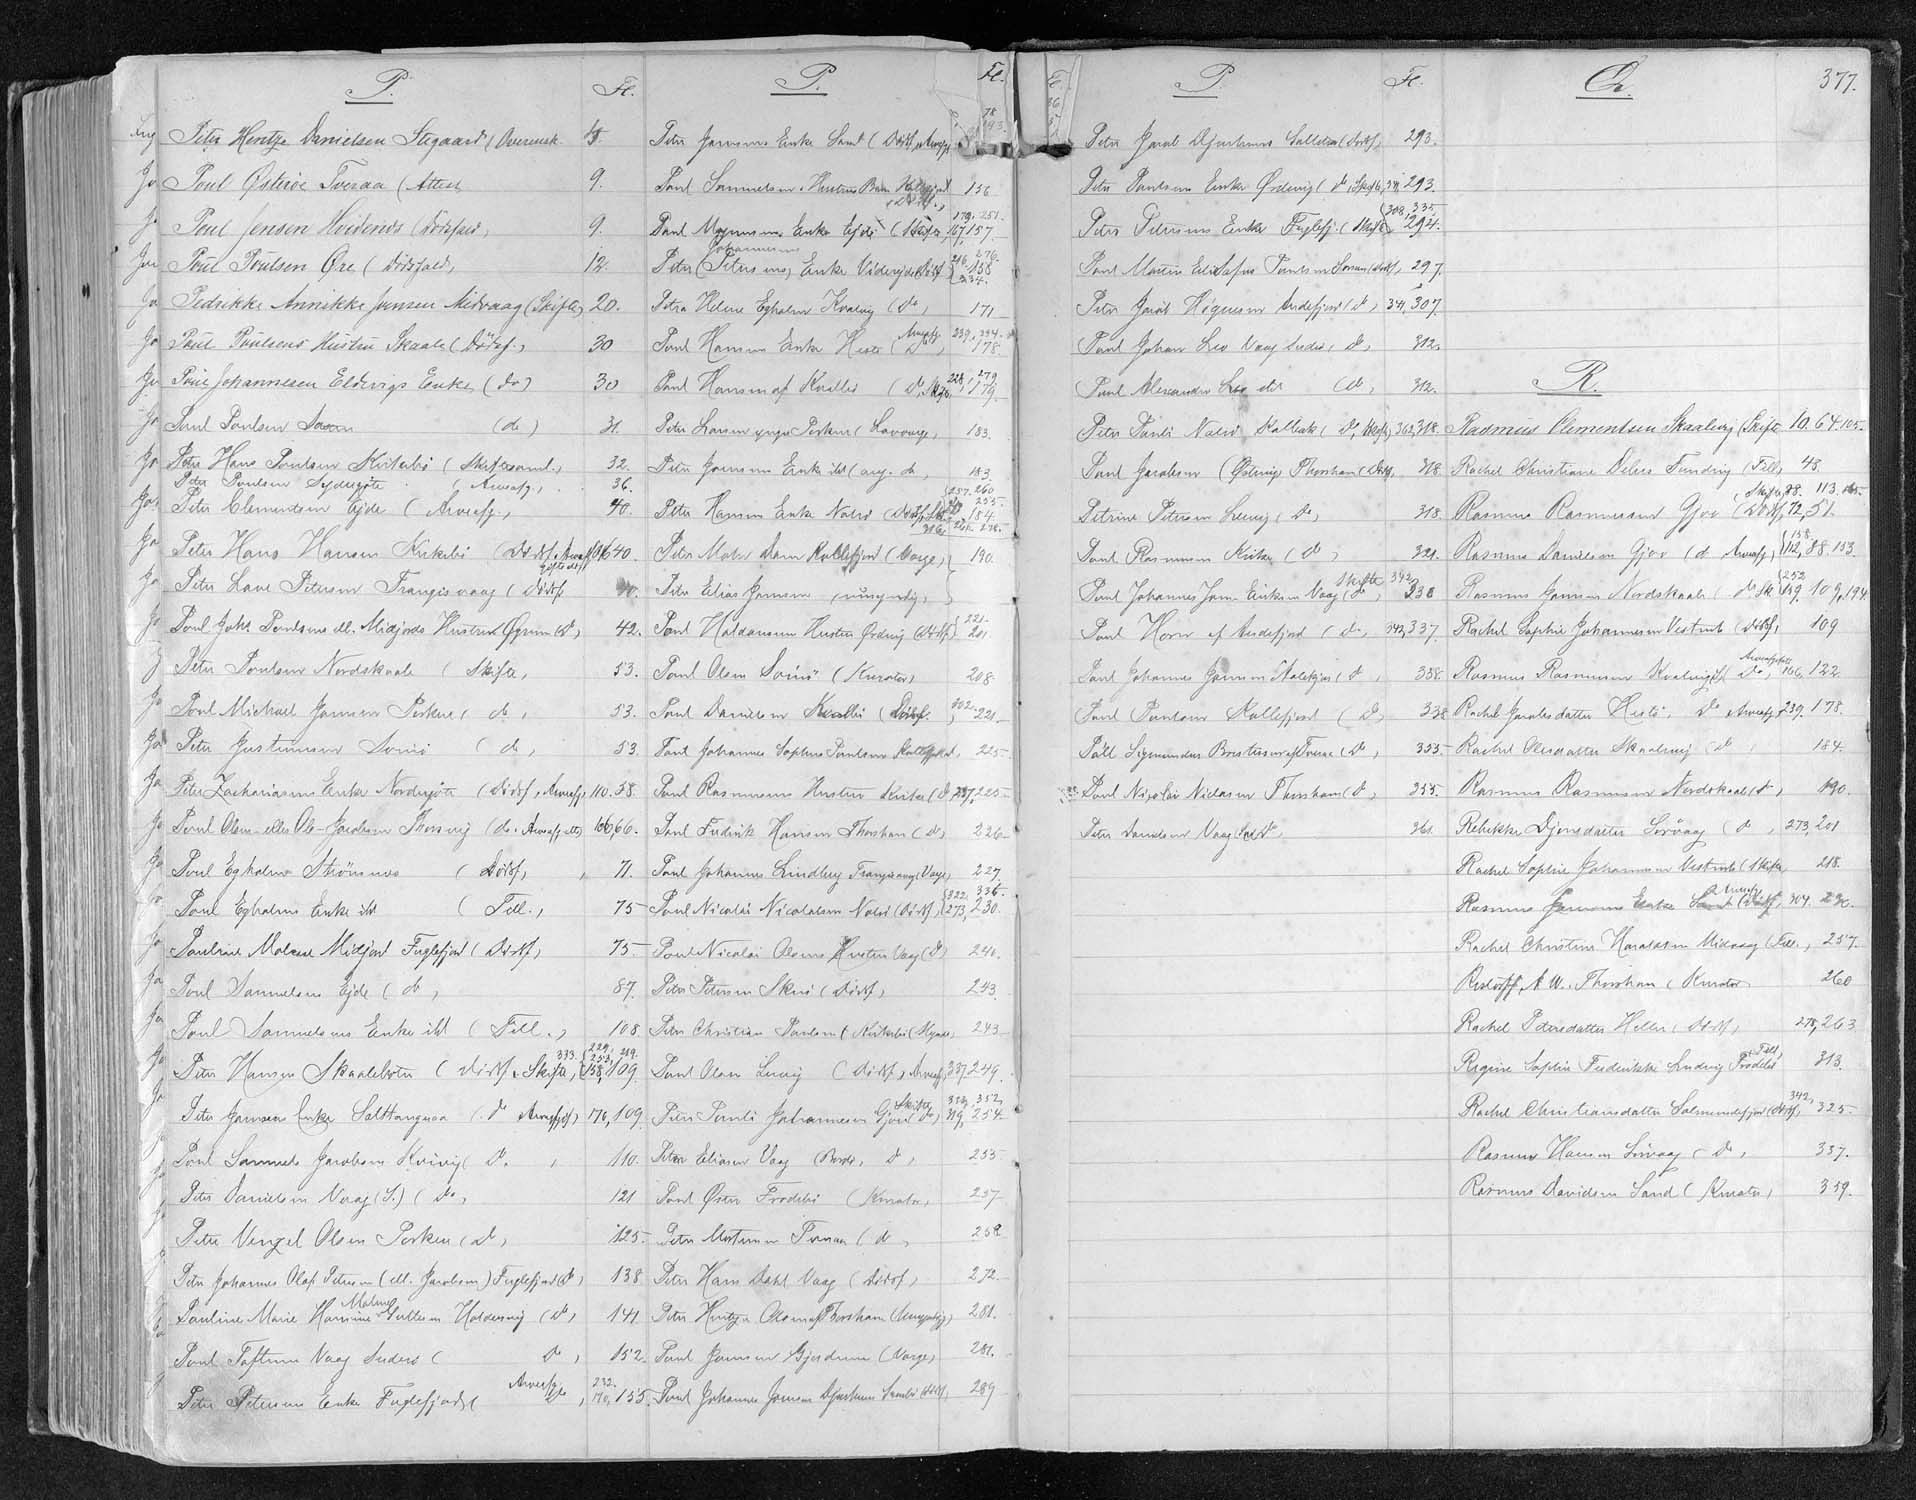 P. Fl.
Peter Hentze Danielsen Stegaard (Overensk. 5.
Poul Østerøe Tveraa (Attest 9.
Poul Jensen Hvidenæs (Dödsfald, 9.
Poul Poulsen Øre (Dödsfald, 12.
Pedrikke Annikke Jensen Midvaag (Skifte, 20.
Poul Poulsens Hustru Skaale (Dödsf., 30
Poul Johannesen Eldevigs Enke (do) 30
Poul Poulsen (do) 31.
Peter Hans Poulsen Kirkebö (Skiftesaml., 32.
Peter Poulsen Sydergöte (Arvefg., 36.
Peter Clementsen Ejde (Arvefg., 40.
Peter Hans Hansen Kirkebö (Dödsf., 40.
Peter Lave Petersen Frangisvaag (Dödsf.
Poul Joh. Poulsens ell. Midjords Hustru Øgrum (do, 42.
Peter Poulsen Nordskaale (Skifte, 53.
Poul Michael Jansen Porkere (do, 53.
Peter Justinusen Sumö (do, 53.
Peter Zachariasens Enke Nordregöte (Dödsf., Arvefg., 110. 58.
Poul Olsen eller Ole Jacobsen Thorsvig (do. 106, 66.
Poul Egholm Strömnæs (Dödsf., 71.
Poul Egholms Enke ibd (Fell., 75
Pauline Malene Midjord Fuglefjord (Dödsf., 75
Poul Samuelsen Ejde (do, 87.
Poul Samuelsens Enke ibd (Fell., 108
333. 229. 253. 219.
Peter Hansen Skaalebotn (Dödsf., Skifte, 158, 109.
Peter Jansens Enke Saltangaraa (do Arvefg., 176, 109.
Poul Samuel Jacobsen Kvivig (do, 110.
Peter Danielsen Vaag (S.) (do, 121
Peter Wenzel Olsen Porkere (do, 125.
Peter Johannes Olaf Petersen (ell. Jacobsen) Fuglefjord (do, 138
Malene
Pauline Marie Hansine Guttesen Haldersvig (do, 141
Poul Toftum Vaag Suderö (do, 152.
Arvefg. 232.
Peter Petersens Enke Fuglefjord (do, 170, 155.
P. Fl.
78
193.
Peter Jansens Enke Sand (Dödsf., Arvefg.,
Poul Samuelsens Hustrus Kalsfjord 156
(Dödsf.,
179. 251.
Poul Magnusens Enke Ejde (Skifte, 167, 157.
Johannesens
216, 276.
Peter (Petersens) Enke Viderejde (Dödsf., 158
334.
Petra Helene Egholm Kvalvig (do, 171
Arvefg. 239, 334.
Poul Hansens Enke Hestö (do, 178.
228, 279
Poul Hansen af Kvalbö (do, Skifte, 179.
Peter Larsen yngre Porkere (Lavværge, 183.
Peter Jansens Enke ibd (ang. do, 183.
257. 260
255.
Peter Hansens Enke Nolsö (Dödsf., Skifte, 184.
316.
Peter Mohr Dam Kollefjord (Værge, 190.
Peter Elias Jansen (umyndig,
221.
Poul Haldansens Hustru Ördevig (Dödsf., 201
Poul Olsen Sumö (Kurator, 208.
302.
Poul Danielsen Kvalbö (Dödsf., 221.
Poul Johannes Sophus Poulsen Kollefjord, 225
Poul Rasmussens Hustru Kirke (do, 237, 225
Poul Fredrik Hansen Thorshavn (do, 226
Poul Johannes Lindberg Frangisvaag (Værge, 227.
322, 336.
Poul Nicolai Nicolaisen Nolsö (Dödsf., 273, 230.
Poul Nicolai Olsens Hustru Vaag (do, 240.
Peter Petersen Skuö (Dödsf., 243.
Peter Christian Poulsen (Kirkebö (Skjøde, 243
Poul Olsen Lervig (Dödsf., Arvefg., 337, 249.
Skifte, 323, 352,
Peter Pauli Johannesen Gjove (do, 319, 254.
Peter Eliasen Vaag (Bordö, do, 255.
Poul Öster Frodebö (Kurator, 257.
Peter Mortensen Tveraa (do, 258
Peter Hans Dahl Vaag (Dödsf., 272.
Peter Hentze Olsen af Thorshavn (Umyndigg., 281.
Poul Jansen Gjerdum (Værge, 281.
Poul Johannes Jensen Djurhuus Sandö (Dödsf., 289
P. Fl.
Peter Jacob Djurhuus Selletræ (Dödsf., 293.
Peter Poulsens Enke Ördevig (do, Skifte, 311, 293.
308, 335.
Peter Petersens Enke Fuglefj. (Skifte, 294.
Poul Poulsen (Dödsf., 297.
Peter Jacob Høgnesen Andefjord (do, 341, 307.
Poul Johan Leo Vaag Suderö (do, 312.
Poul Alexander Leo ibd (do, 312.
Peter Pauli Nolsö Kalbak (do, Skifte, 362, 318.
Poul Jacobsen (Østerup Thorshavn (Dødsf., 318.
Petrine Petersen Lervig (do, 318.
Poul Rasmussen Kirke (do, 321.
Skifte 342,
Poul Johannes Jens Eriksen Vaag (do, 330
Poul Horn af Andefjord (do, 342, 337.
Poul Johannes Jansen Kollefjord (do, 338.
Poul Poulsen Kollefjord (do, 338
Páll Sigmundur Brestisson af Tveraa (do, 355.
Poul Nicolai Niclasen Thorshavn (do, 355.
Peter Danielsen Vaag (do, 361.
Q. 377.
R.
Rasmus Clementsen Skaalevig (Skifte 10. 64. 105.
Rachel Christiane Debes Funding (Fell., 48.
Skifte, 88. 113. 165.
Rasmus Rasmussen Gjov (Dödsf., 72, 51.
158.
Rasmus Danielsen Gjov (do Arvefg., 112, 88. 153.
252
Rasmus Jansen Nordskaale (do Sk. 159. 109, 194.
Rachel Sophie Johannesen Vestmh. (Dödsf., 109
Rasmus Rasmussen Kvalvig (do, 166, 122.
Rachel Jacobsdatter Hestö, do Arvefg., 239. 178.
Rachel Olesdatter Skaalevig (do, 184.
Rasmus Rasmussen Nordskaale (do, 190.
Rebekka Djonsdatter Sörvaag (do, 273, 201
Rachel Sophie Johannesen Vestmh. (Skifte, 218.
Arvefg.
Rasmus Jansens Enke Sand (Dödsf., 304. 230.
Rachel Christine Haraldsen Midvaag (Fell., 257.
Restorff, M. W., Thorshavn (Kurator 260
Rachel Pedersdatter Hellur (Dödsf., 278, 263
Fell.,
Regine Sophie Frederikke Ludvig Frodebö 313.
342,
Rachel Christiansdatter Salmundefjord (Dødsf., 325.
Rasmus Hansen Sörvaag (do, 337.
Rasmus Davidsen Sand (Kurator, 359.